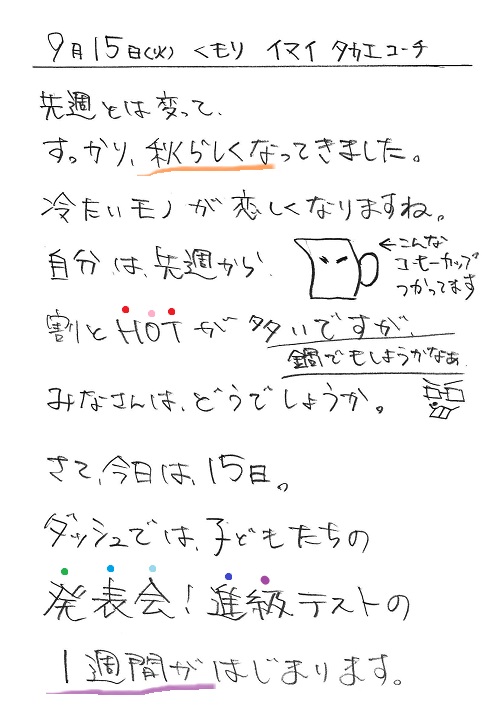 9月15日(火) くもり イマイ タカエコーチ
先週とは変って、
すっかり、秋らしくなってきました。
冷たいモノが恋しくなりますね。
自分は、先週から
←こんな
コーヒーカップ
つかってます
割とHOTが多いですが、
鍋でもしようかなぁ
みなさんは、どうでしょうか。
さて、今日は、15日。
ダッシュでは、子どもたちの
発表会！進級テストの
1週間がはじまります。